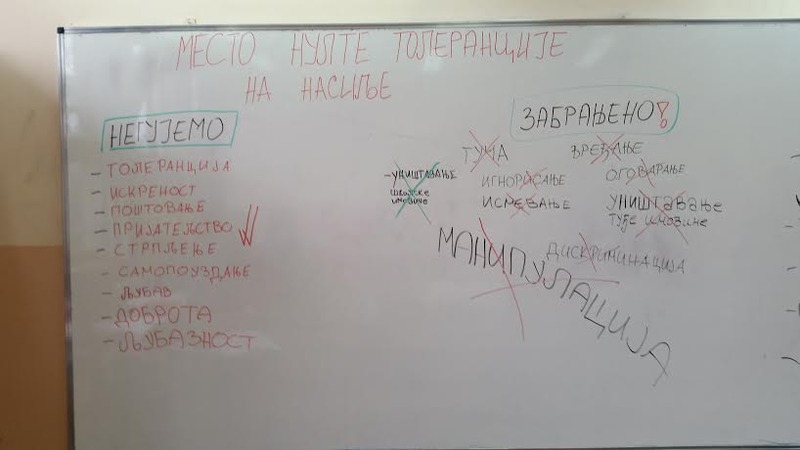 МЕСТО НУЛТЕ ТОЛЕРАНЦИЈЕ
НА НАСИЉЕ
НЕГУЈЕМО
- ТОЛЕРАНЦИЈА
- ИСКРЕНОСТ
- ПОШТОВАЊЕ
- ПРИЈАТЕЉСТВО
- СТРПЉЕЊЕ
- САМОПОУЗДАЊЕ
- ЉУБАВ
- ДОБРОТА
- ЉУБАЗНОСТ
ЗАБРАЊЕНО!
ТУЧА
ВРЕЂАЊЕ
- УНИШТАВАЊЕ
ШКОЛСКЕ
ИМОВИНЕ
ИГНОРИСАЊЕ
ОГОВАРАЊЕ
ИСМЕВАЊЕ
УНИШТАВАЊЕ
ТУЂЕ ИМОВИНЕ
МАНИПУЛАЦИЈА
ДИСКРИМИНАЦИЈА